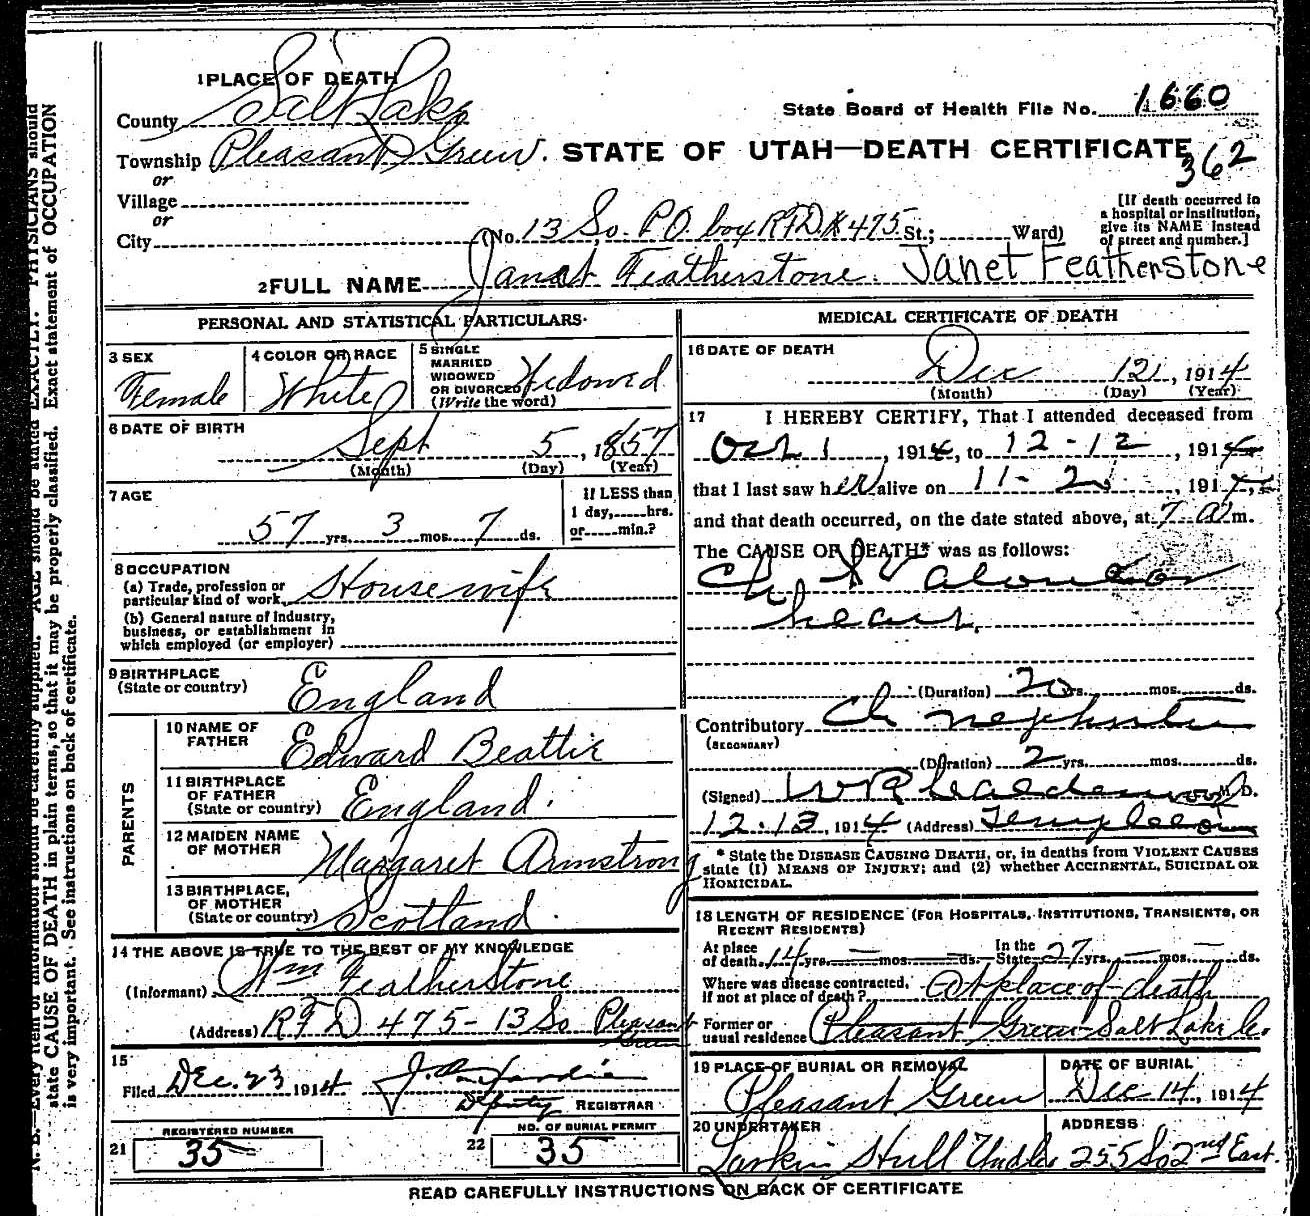 1 PLACE OF DEATH
County Salt Lake
State Board of Health File No. 1660
Township Pleasant Green.
STATE OF UTAH—DEATH CERTIFICATE
362
or
Village
or
City
(No. 13 So. P.O. box RFD # 475 St.; Ward)
[If death occurred in a hospital or institution, give its NAME instead of street and number.]
2 FULL NAME Janet Featherstone. Janet Featherstone
PERSONAL AND STATISTICAL PARTICULARS
3 SEX
Female
4 COLOR OR RACE
White
5 SINGLE
MARRIED
WIDOWED
OR DIVORCED
(Write the word)
Widowed
6 DATE OF BIRTH
Sept 5, 1857
(Month) (Day) (Year)
7 AGE
57 yrs. 3 mos. 7 ds.
If LESS than
1 day, hrs.
or min.?
8 OCCUPATION
(a) Trade, profession or
particular kind of work Housewife
(b) General nature of industry,
business, or establishment in
which employed (or employer)
9 BIRTHPLACE
(State or country)
England
PARENTS
10 NAME OF
FATHER
Edward Beattie
11 BIRTHPLACE
OF FATHER
(State or country)
England.
12 MAIDEN NAME
OF MOTHER
Margaret Armstrong
13 BIRTHPLACE,
OF MOTHER
(State or country)
Scotland.
14 THE ABOVE IS TRUE TO THE BEST OF MY KNOWLEDGE
(Informant) Wm Featherstone
(Address) RFD 475 - 13 So Pleasant
Green
15
Filed Dec. 23 1914
Deputy REGISTRAR
21 REGISTERED NUMBER
35
22 NO. OF BURIAL PERMIT
35
MEDICAL CERTIFICATE OF DEATH
16 DATE OF DEATH
Dec 12, 1914
(Month) (Day) (Year)
17 I HEREBY CERTIFY, That I attended deceased from
Oct 1, 1914, to 12-12, 1914
that I last saw her alive on 11-2, 1914,
and that death occurred, on the date stated above, at 7 A m.
The CAUSE OF DEATH* was as follows:
heart.
(Duration) 20 yrs. mos. ds.
Contributory Ch nephritis
(SECONDARY)
(Duration) 2 yrs. mos. ds.
(Signed) M.D.
12-13, 1914 (Address) Templeton
* State the DISEASE CAUSING DEATH, or, in deaths from VIOLENT CAUSES
state (1) MEANS OF INJURY; and (2) whether ACCIDENTAL, SUICIDAL OR
HOMICIDAL.
18 LENGTH OF RESIDENCE (FOR HOSPITALS, INSTITUTIONS, TRANSIENTS, OR
RECENT RESIDENTS)
At place
of death 14 yrs. — mos. — ds. In the
State 27 yrs. — mos. — ds.
Where was disease contracted,
if not at place of death? At place of death
Former or
usual residence Pleasant Green Salt Lake Co.
19 PLACE OF BURIAL OR REMOVAL
Pleasant Green
DATE OF BURIAL
Dec 14, 1914
20 UNDERTAKER
Larkin Hull Undk
ADDRESS
255 So 2nd East.
READ CAREFULLY INSTRUCTIONS ON BACK OF CERTIFICATE
N. B. Every item of information should be carefully supplied. AGE should be stated EXACTLY. PHYSICIANS should
state CAUSE OF DEATH in plain terms, so that it may be properly classified. Exact statement of OCCUPATION
is very important. See instructions on back of certificate.